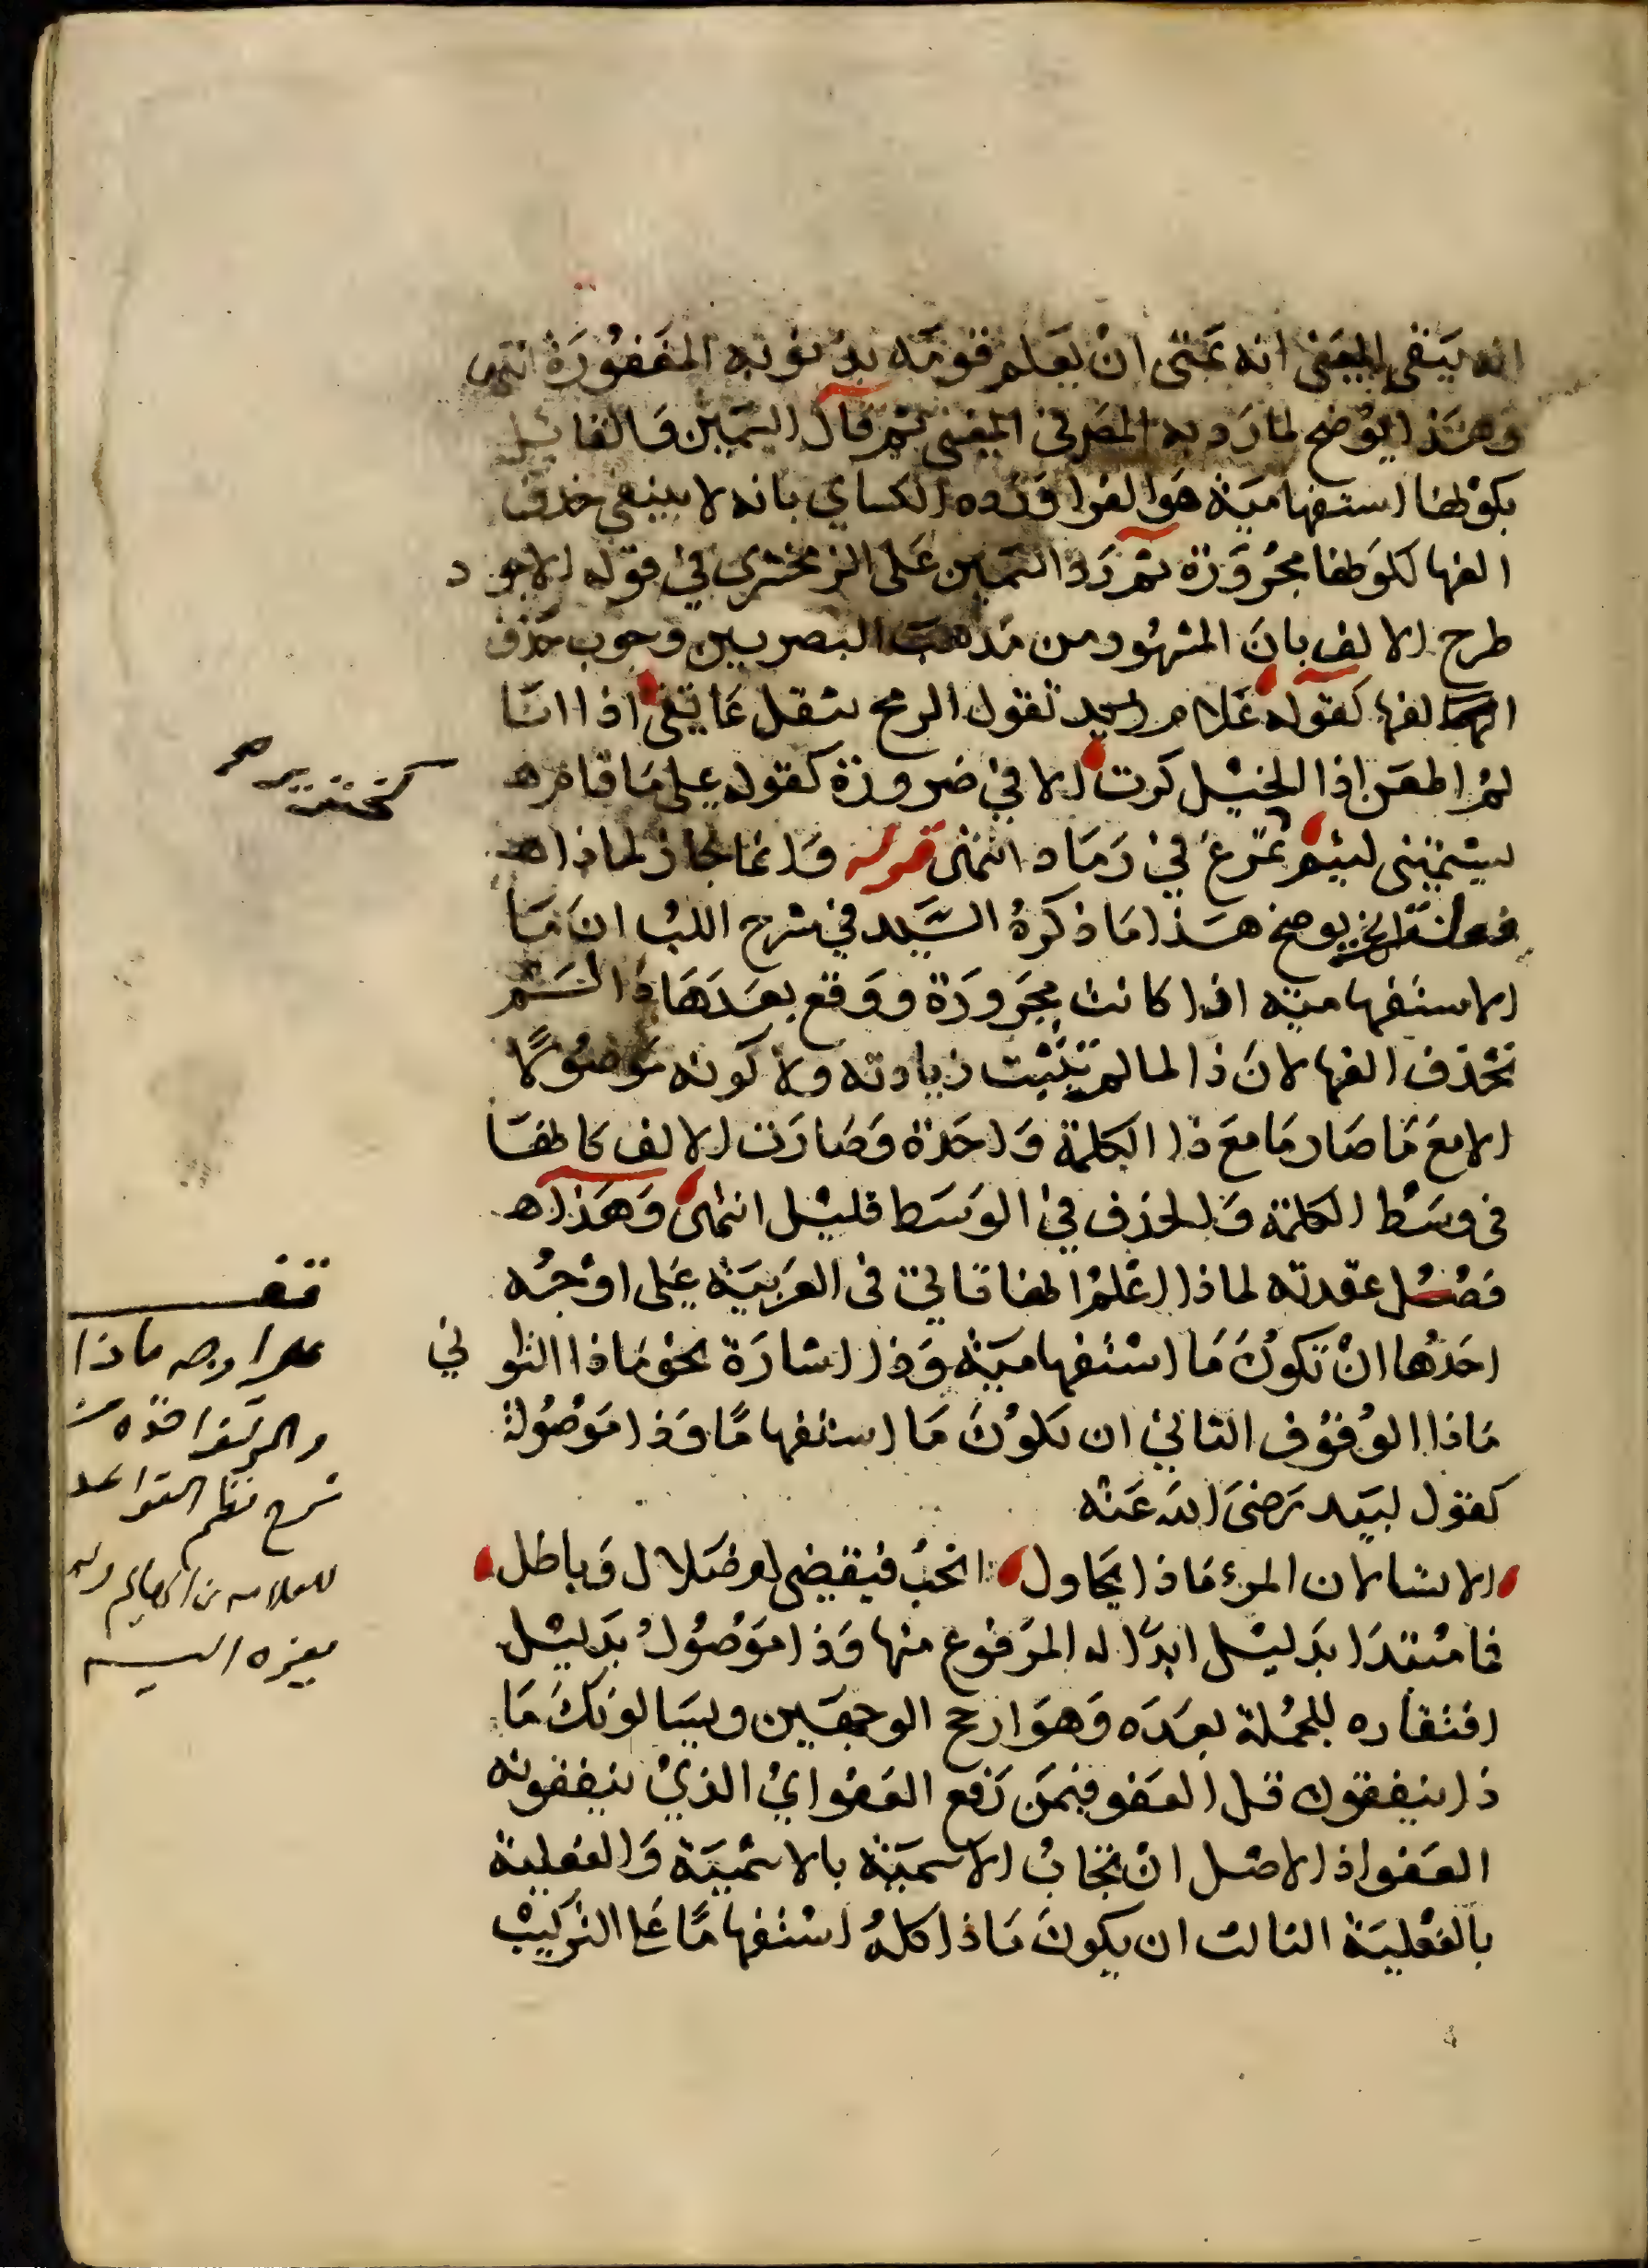 انه يبقى المعنى انه تمنى ان يعلم قومه بذنوبه المغفورة انتهى
وهذا يوضح لما رد به المص في المغنى ثم قال السمين والقائيل
بكونها استفهامية هو الفرا ورده الكساي بانه لا ينبغي حذف
الفها لكونها مجرورة ثم رد السمين على الزمخشري في قوله الاجود
طرح الالف بان المشهور من مذهب البصريين وجوب حذف
الفها كقوله علام تقول الرمح يثقل عاتقي اذا انا
لم اطعن اذا الخيل كرت الا في ضرورة كقوله على ما قام
يشتمني لئيم كخنزير تمرغ في رماد انتهى قوله وانما جاز لماذا
فعلت الخ يوضح هذا ما ذكره السيد في شرح اللب ان ما
الاستفهامية اذا كانت مجرورة ووقع بعدها ذا لم
تحذف الفها لان ذا لما لم تثبت زيادته ولا كونه موصولا
الا مع ما صار ما مع ذا الكلمة واحدة وصارت الالف كانها
في وسط الكلمة والحذف في الوسط قليل انتهى وهذا
فصل عقدته لماذا اعلم انها تاتي في العربية على اوجه
احدها ان تكون ما استفهامية وذا اشارة نحو ماذا التواني
ماذا الوقوف الثاني ان تكون ما استفهاما وذا موصولة
كقول لبيد رضى الله عنه
الا تسالان المرء ماذا يحاول انحب فيقضى ام ضلال وباطل
فما مبتدا بدليل ابداله المرفوع منها وذا موصول بدليل
افتقاره للجملة بعده وهو ارجح الوجهين ويسالونك ما
ذا ينفقون قل العفو فيمن رفع العفو اي الذي ينفقونه
العفو اذ الاصل ان تجاب الاسمية بالاسمية والفعلية
بالفعلية الثالث ان يكون ماذا كله استفهاما على التركيب
كخنزير صح
قف
على اوجه ماذا
شرح نظم القواعد
للعلامه